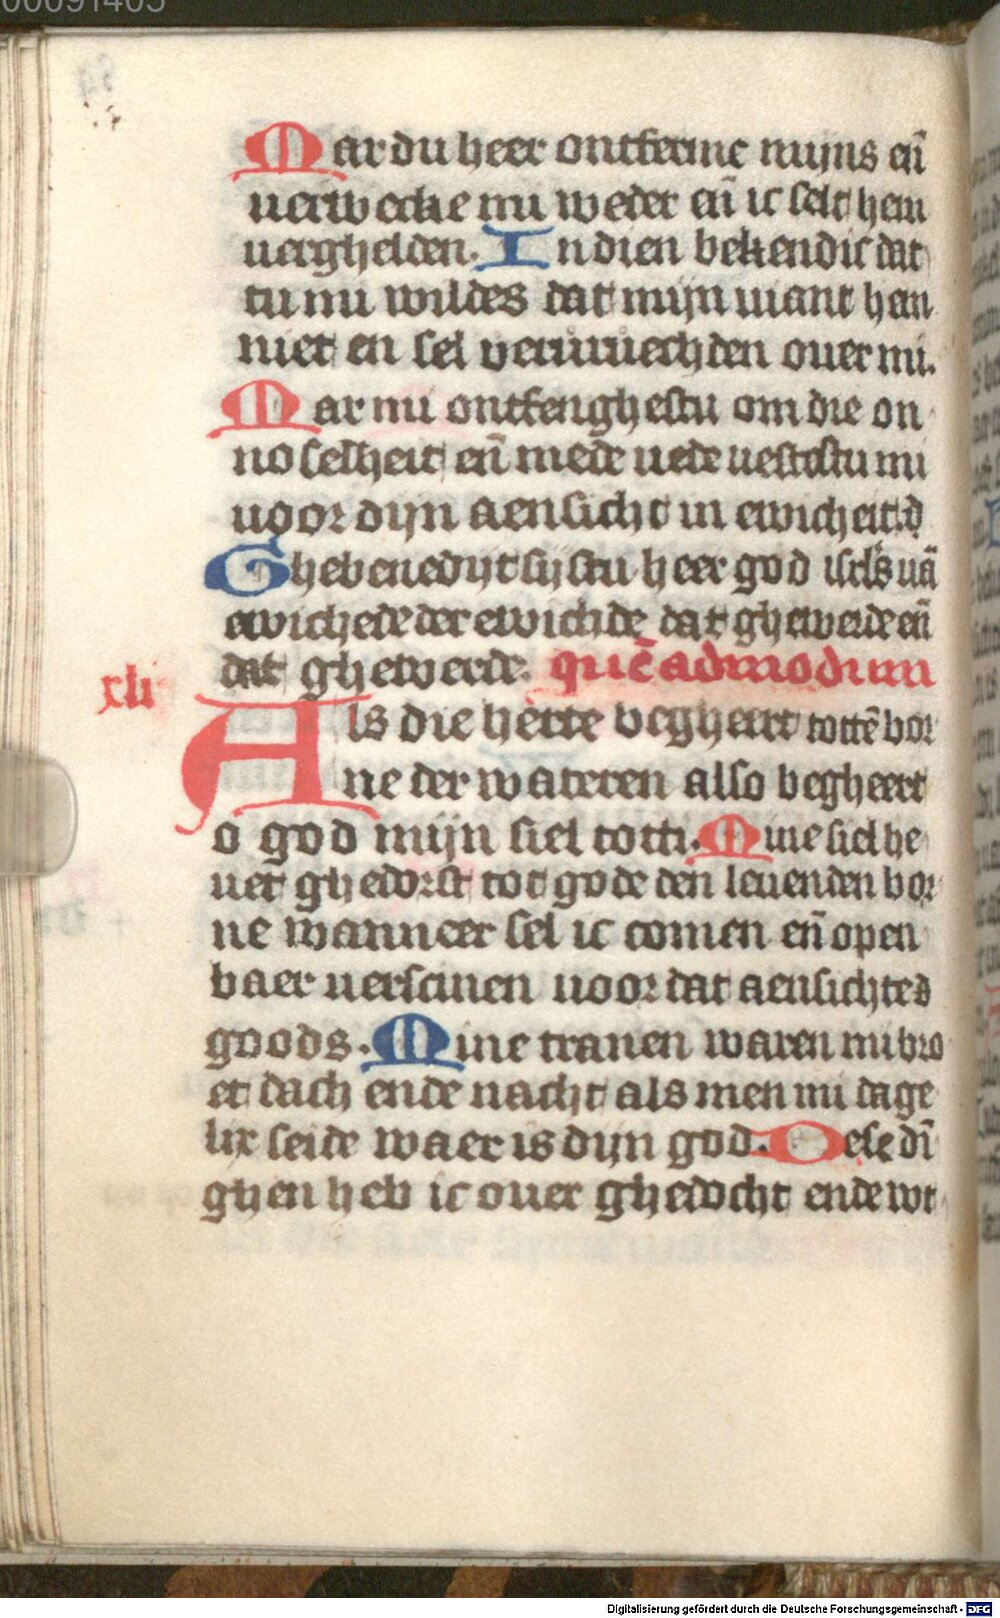 00091405
Mar du heer ontferme mijns en̄
verwecke mi weder en̄ ic selt hem
verghelden. In dien bekendic dat
tu mi wildes dat mijn viant hem
niet en sel vervruechden ouer mi.
Mar mi ontfenghestu om die on
noselheit en̄ mede vestestu mi
voor dijn aensicht in ewicheit.
Ghebenedijt sijstu heer god isrls vā
ewichede der ewichde dat ghewerde en̄
dat ghewerde. quēadmodum
xli
Als die herte begheert tottē bor
ne der wateren also begheert
o god mijn siel totti. Mine siel he
uet ghedorst tot gode den leuenden bor
ne wanneer sel ic comen en̄ open
baer verscinen voor dat aensichte d
goods. Mine tranen waren mi bro
et dach ende nacht als men mi dage
lix seide waer is dijn god. Dese dī
ghen heb ic ouer ghedocht ende wt
Digitalisierung gefördert durch die Deutsche Forschungsgemeinschaft - DFG